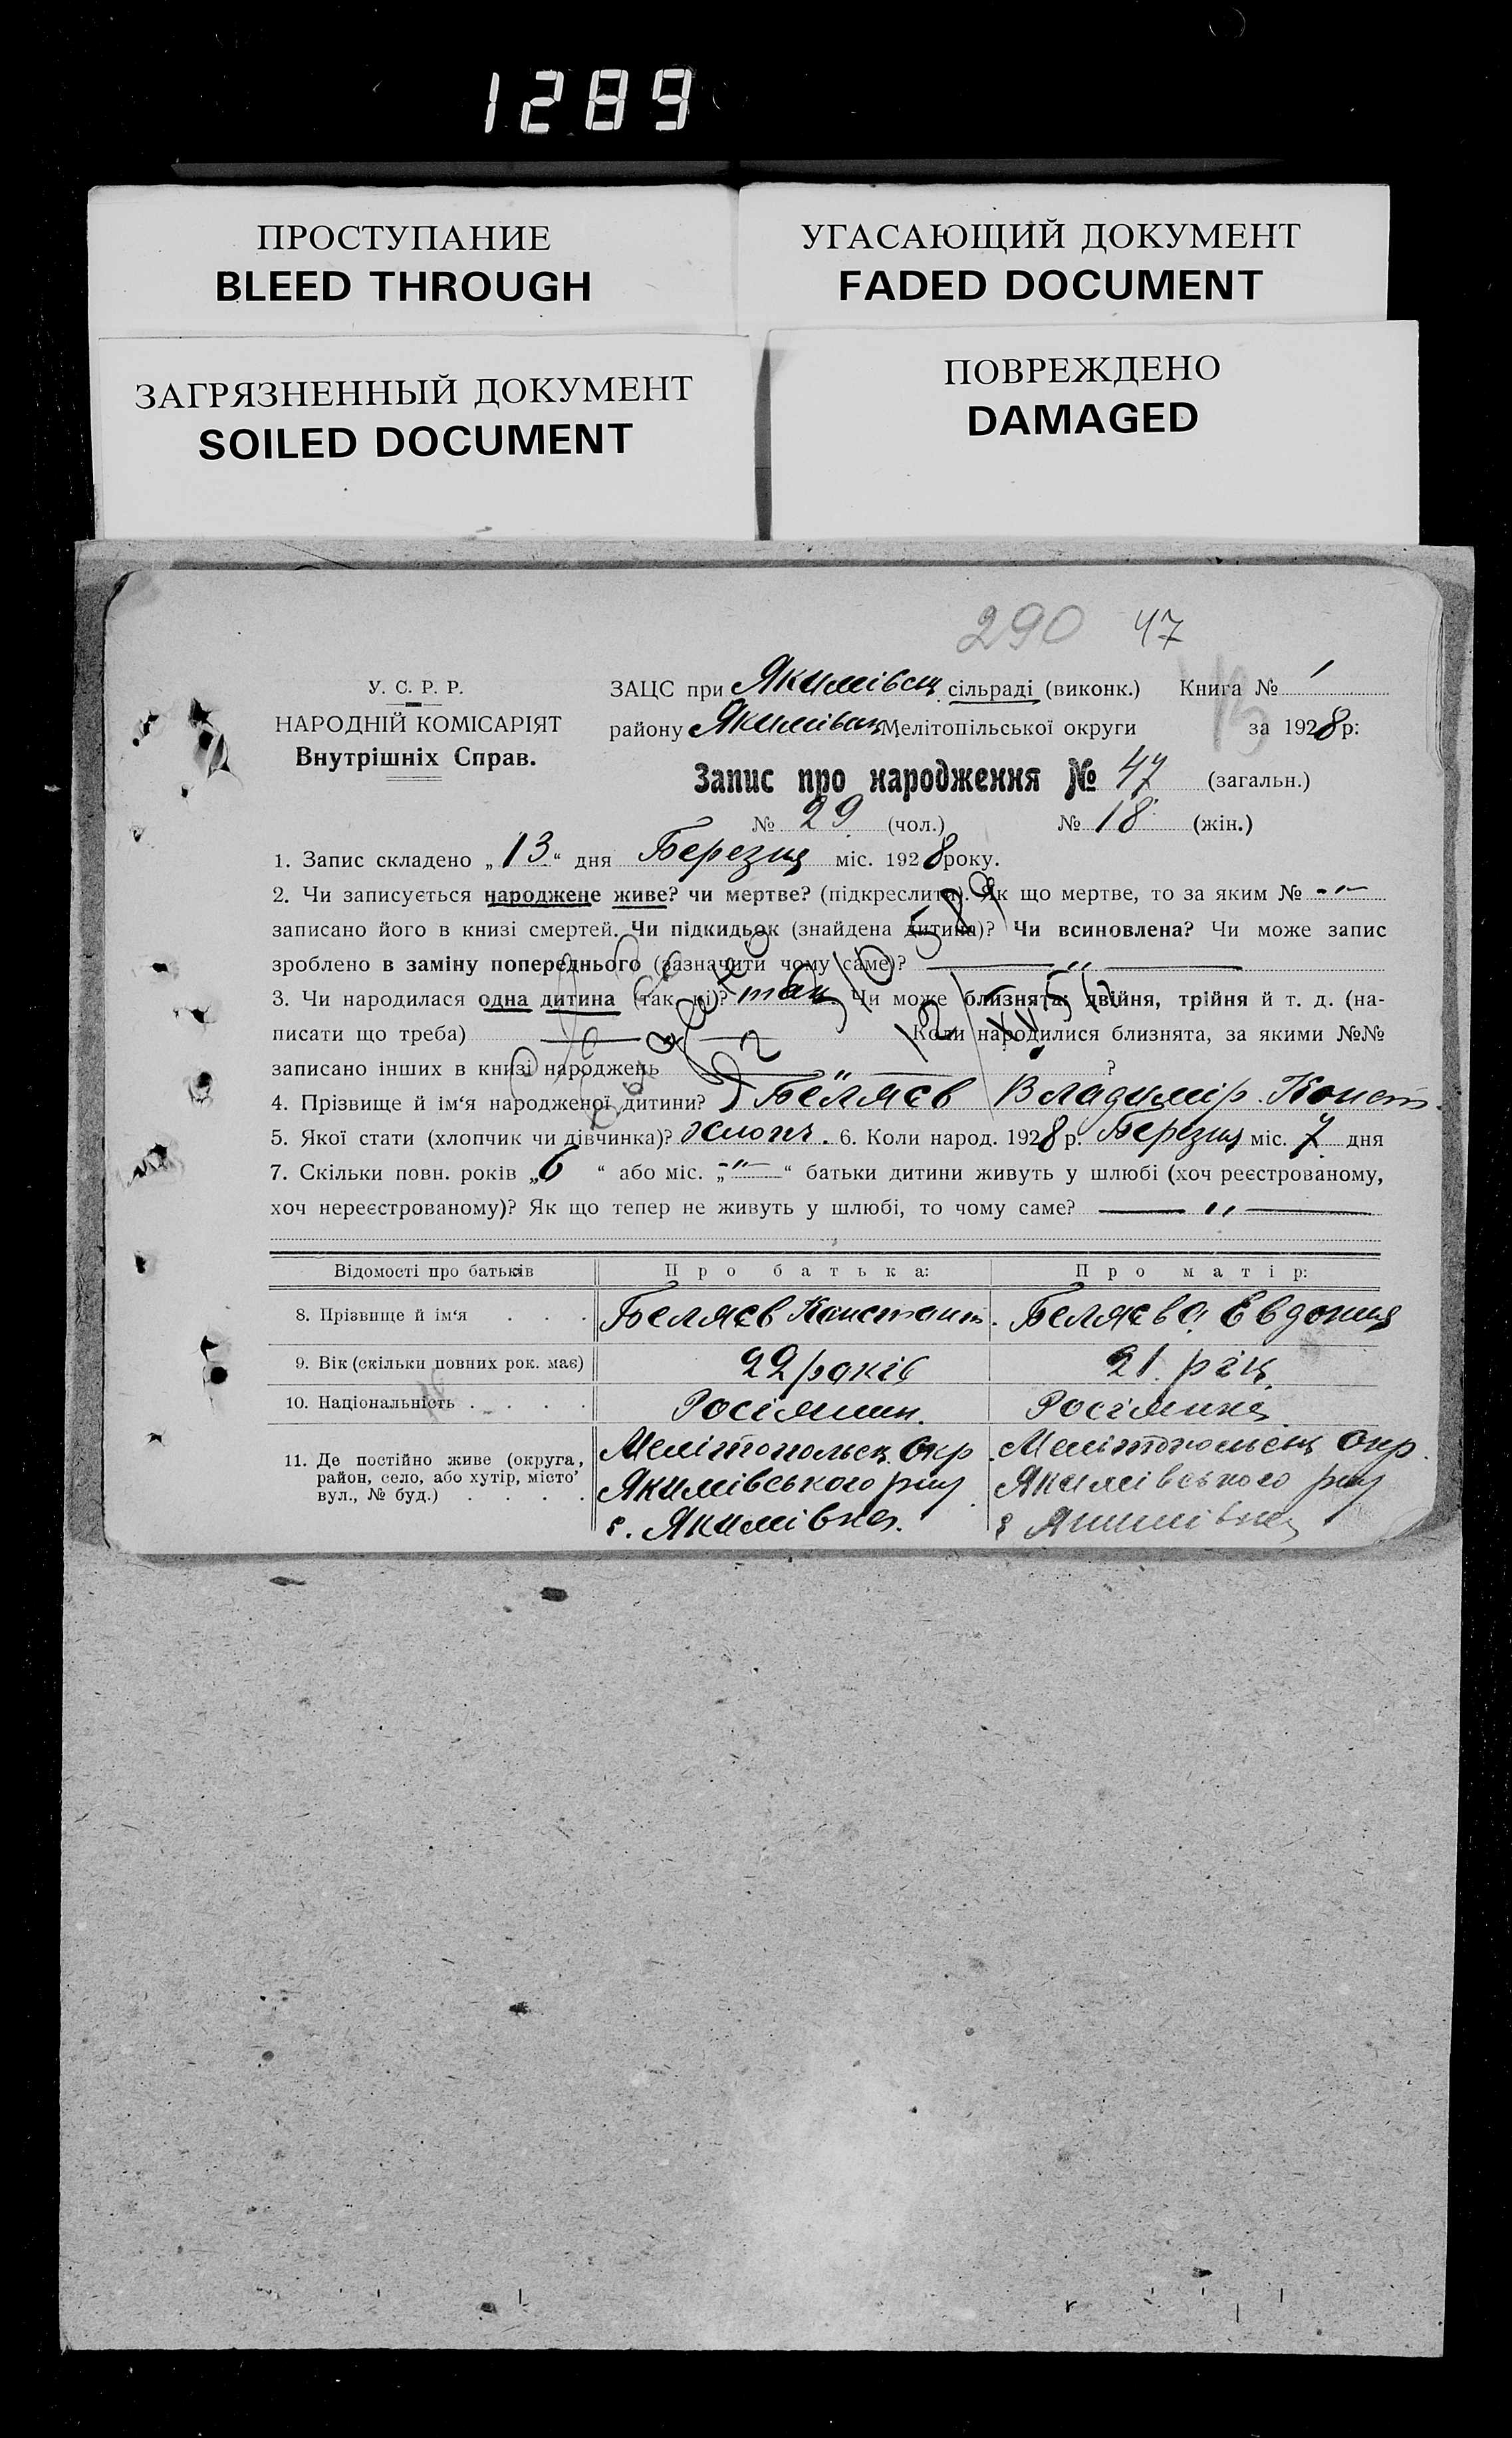 1289
ПРОСТУПАНИЕ
BLEED THROUGH
УГАСАЮЩИЙ ДОКУМЕНТ
FADED DOCUMENT
ЗАГРЯЗНЕННЫЙ ДОКУМЕНТ
SOILED DOCUMENT
ПОВРЕЖДЕНО
DAMAGED
290 47
У. С. Р. Р.
НАРОДНІЙ КОМІСАРІЯТ
Внутрішніх Справ.
ЗАЦС при Якимівськ сільраді (виконк.) Книга № 1
району Якимівськ Мелітопільської округи за 1928 р:
Запис про народження № 47 (загальн.)
№ 29 (чол.) № 18 (жін.)
1. Запис складено „13“ дня Березня міс. 1928 року.
2. Чи записується народжене живе? чи мертве? (підкреслити). Як що мертве, то за яким № -"-
записано його в книзі смертей. Чи підкидьок (знайдена дитина)? Чи всиновлена? Чи може запис
зроблено в заміну попереднього (зазначити чому саме)? — " —
3. Чи народилася одна дитина (так, ні)? так Чи може близнята: двійня, трійня й т. д. (на-
писати що треба) — Коли народилися близнята, за якими №№
записано інших в книзі народжень — " — ?
4. Прізвище й ім‘я народженої дитини? Беляєв Владимір Конст.
5. Якої стати (хлопчик чи дівчинка)? хлопч. 6. Коли народ. 1928 р. Березня міс. 7 дня
7. Скільки повн. років „6“ або міс. „-"-“ батьки дитини живуть у шлюбі (хоч реєстрованому,
хоч нереєстрованому)? Як що тепер не живуть у шлюбі, то чому саме? — " —
Відомості про батьків Про батька: Про матір:
8. Прізвище й ім‘я . . . Беляєв Констант. Беляєва Евдокия
9. Вік (скільки повних рок. має) 22 років 21 рік
10. Національність . . . . Росіянин. Росіянка
11. Де постійно живе (округа, район, село, або хутір, місто’ вул., № буд.) . . . .
Мелітопольськ. Окр
Якимівського рну
с. Якимівка.
Мелітопольськ Окр.
Якимівського рну
с Якимівка